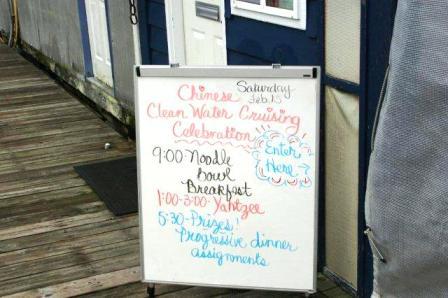 Saturday
Feb. 15
Chinese
Clean Water Cruising
Celebration
Enter
Here →
9:00-Noodle
bowl
Breakfast
1:00-3:00-Yahtzee
5:30-Prizes!
Progressive dinner
assignments